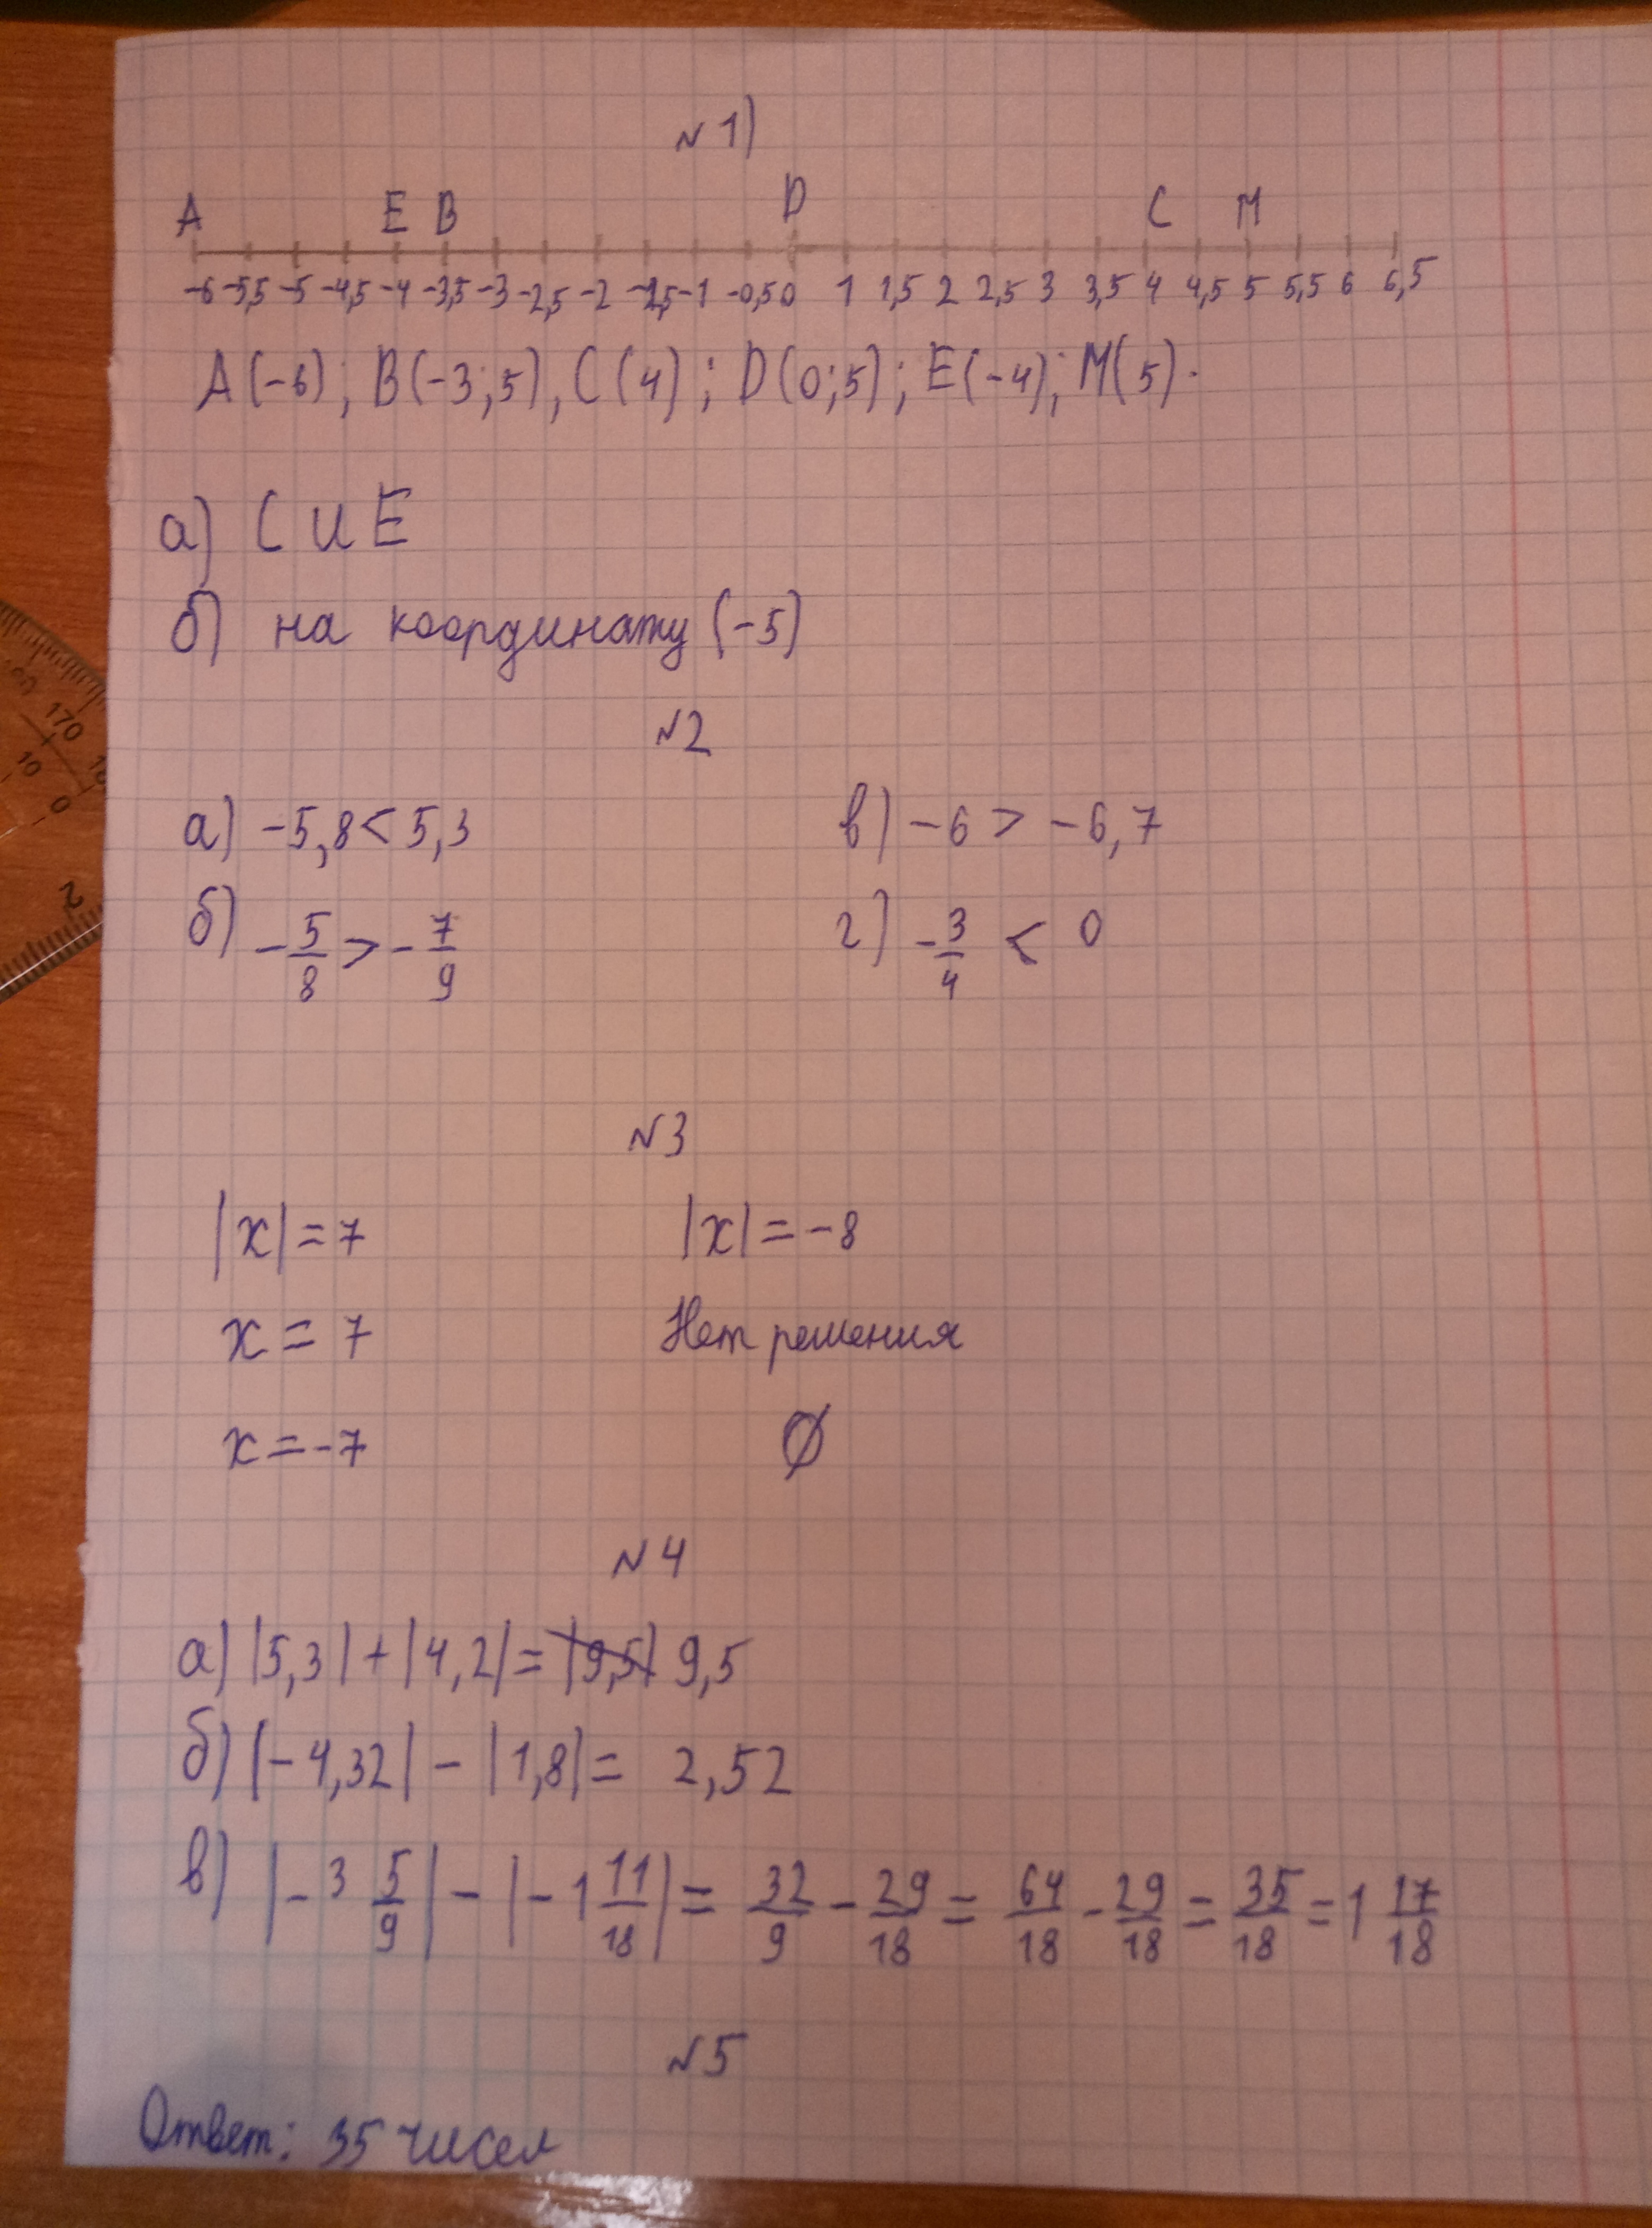 №1)
A E B D C M
-6 -5,5 -5 -4,5 -4 -3,5 -3 -2,5 -2 -1,5 -1 -0,5 0 1 1,5 2 2,5 3 3,5 4 4,5 5 5,5 6 6,5
A(-6); B(-3;5), C(4); D(0;5); E(-4); M(5).
а) C и E
б) на координату (-5)
№2
а) -5,8 < 5,3 в) -6 > -6,7
б) -5/8 > -7/9 г) -3/4 < 0
№3
|x| = 7 |x| = -8
x = 7 Нет решения
x = -7 Ø
№4
а) |5,3| + |4,2| = |9,5| 9,5
б) |-4,32| - |1,8| = 2,52
в) |-3 5/9| - |-1 11/18| = 32/9 - 29/18 = 64/18 - 29/18 = 35/18 = 1 17/18
№5
Ответ: 35 чисел
170
10
0
2